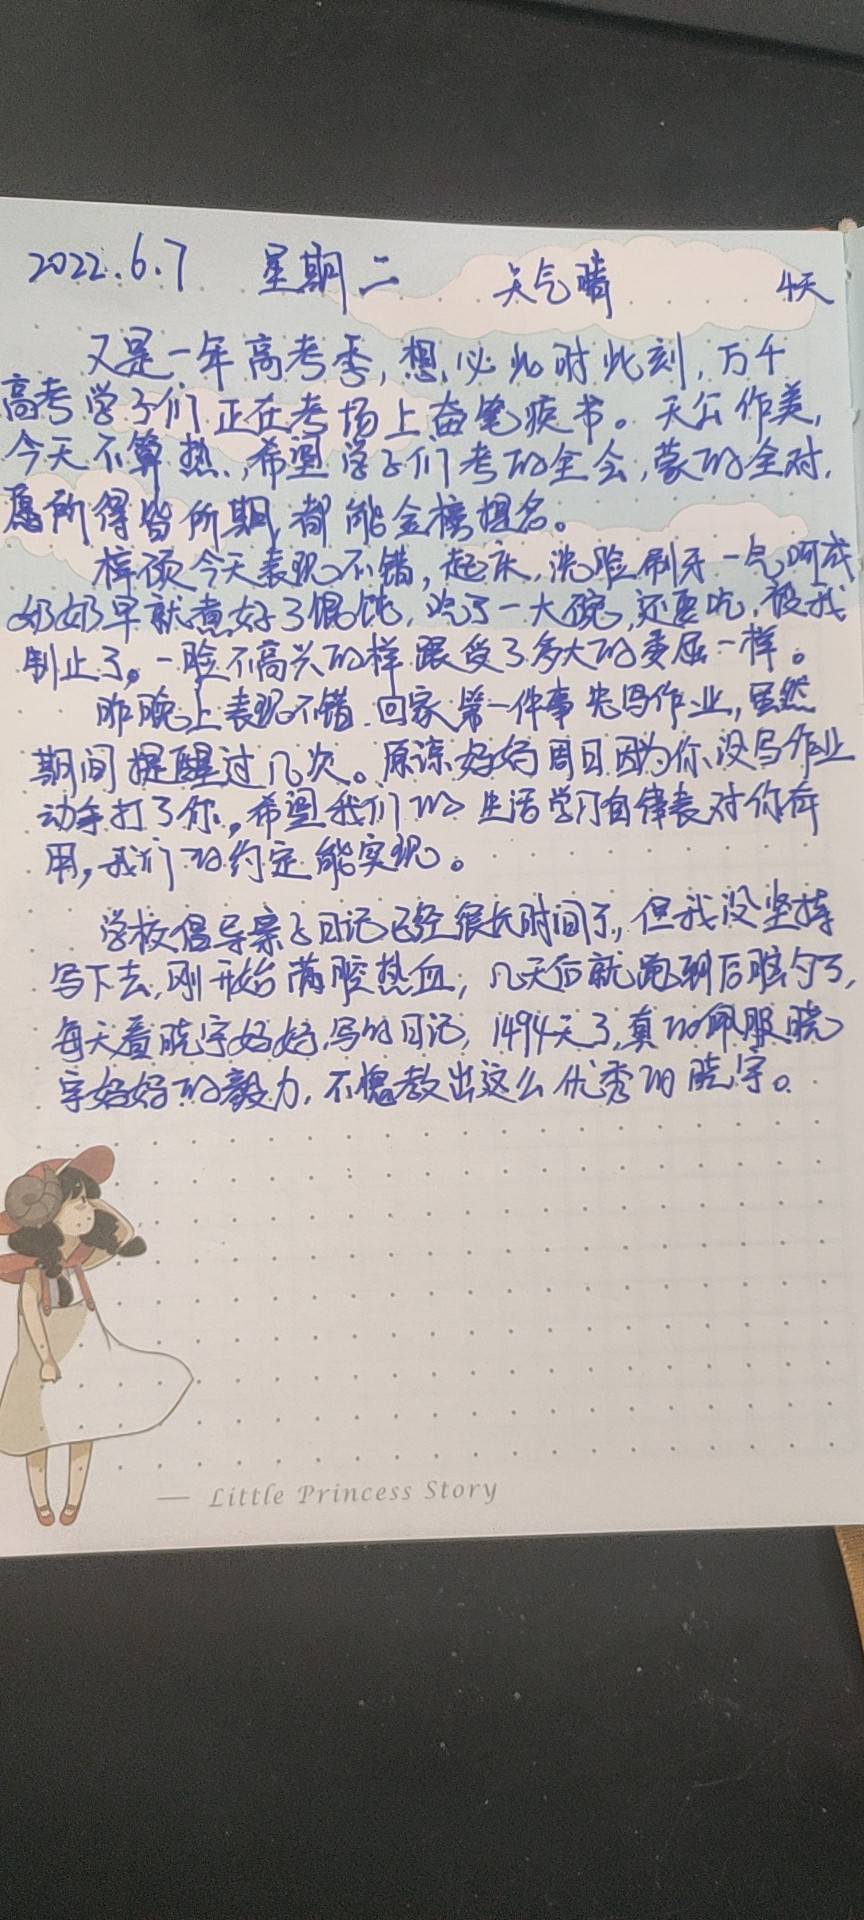 2022.6.7 星期二 天气晴 4天
又是一年高考季,想必此时此刻,万千
高考学子们正在考场上奋笔疾书。天公作美,
今天不算热,希望学子们考的全会,蒙的全对,
愿所得皆所期,都能金榜提名。
梓硕今天表现不错,起床,洗脸刷牙一气呵成
奶奶早就煮好了馄饨,吃了一大碗,还要吃,被我
制止了。一脸不高兴的样 跟受了多大的委屈一样。
昨晚上表现不错.回家第一件事先写作业,虽然
期间提醒过几次。原谅妈妈周日因为你没写作业
动手打了你,希望我们的生活学习自律表对你有
用,我们的约定能实现。
学校倡导亲子日记已经很长时间了,但我没坚持
写下去,刚开始满腔热血,几天后就跑到后脑勺了,
每天看晓宇妈妈写的日记,1494天了,真的佩服晓
宇妈妈的毅力,不愧教出这么优秀的晓宇。
— Little Princess Story